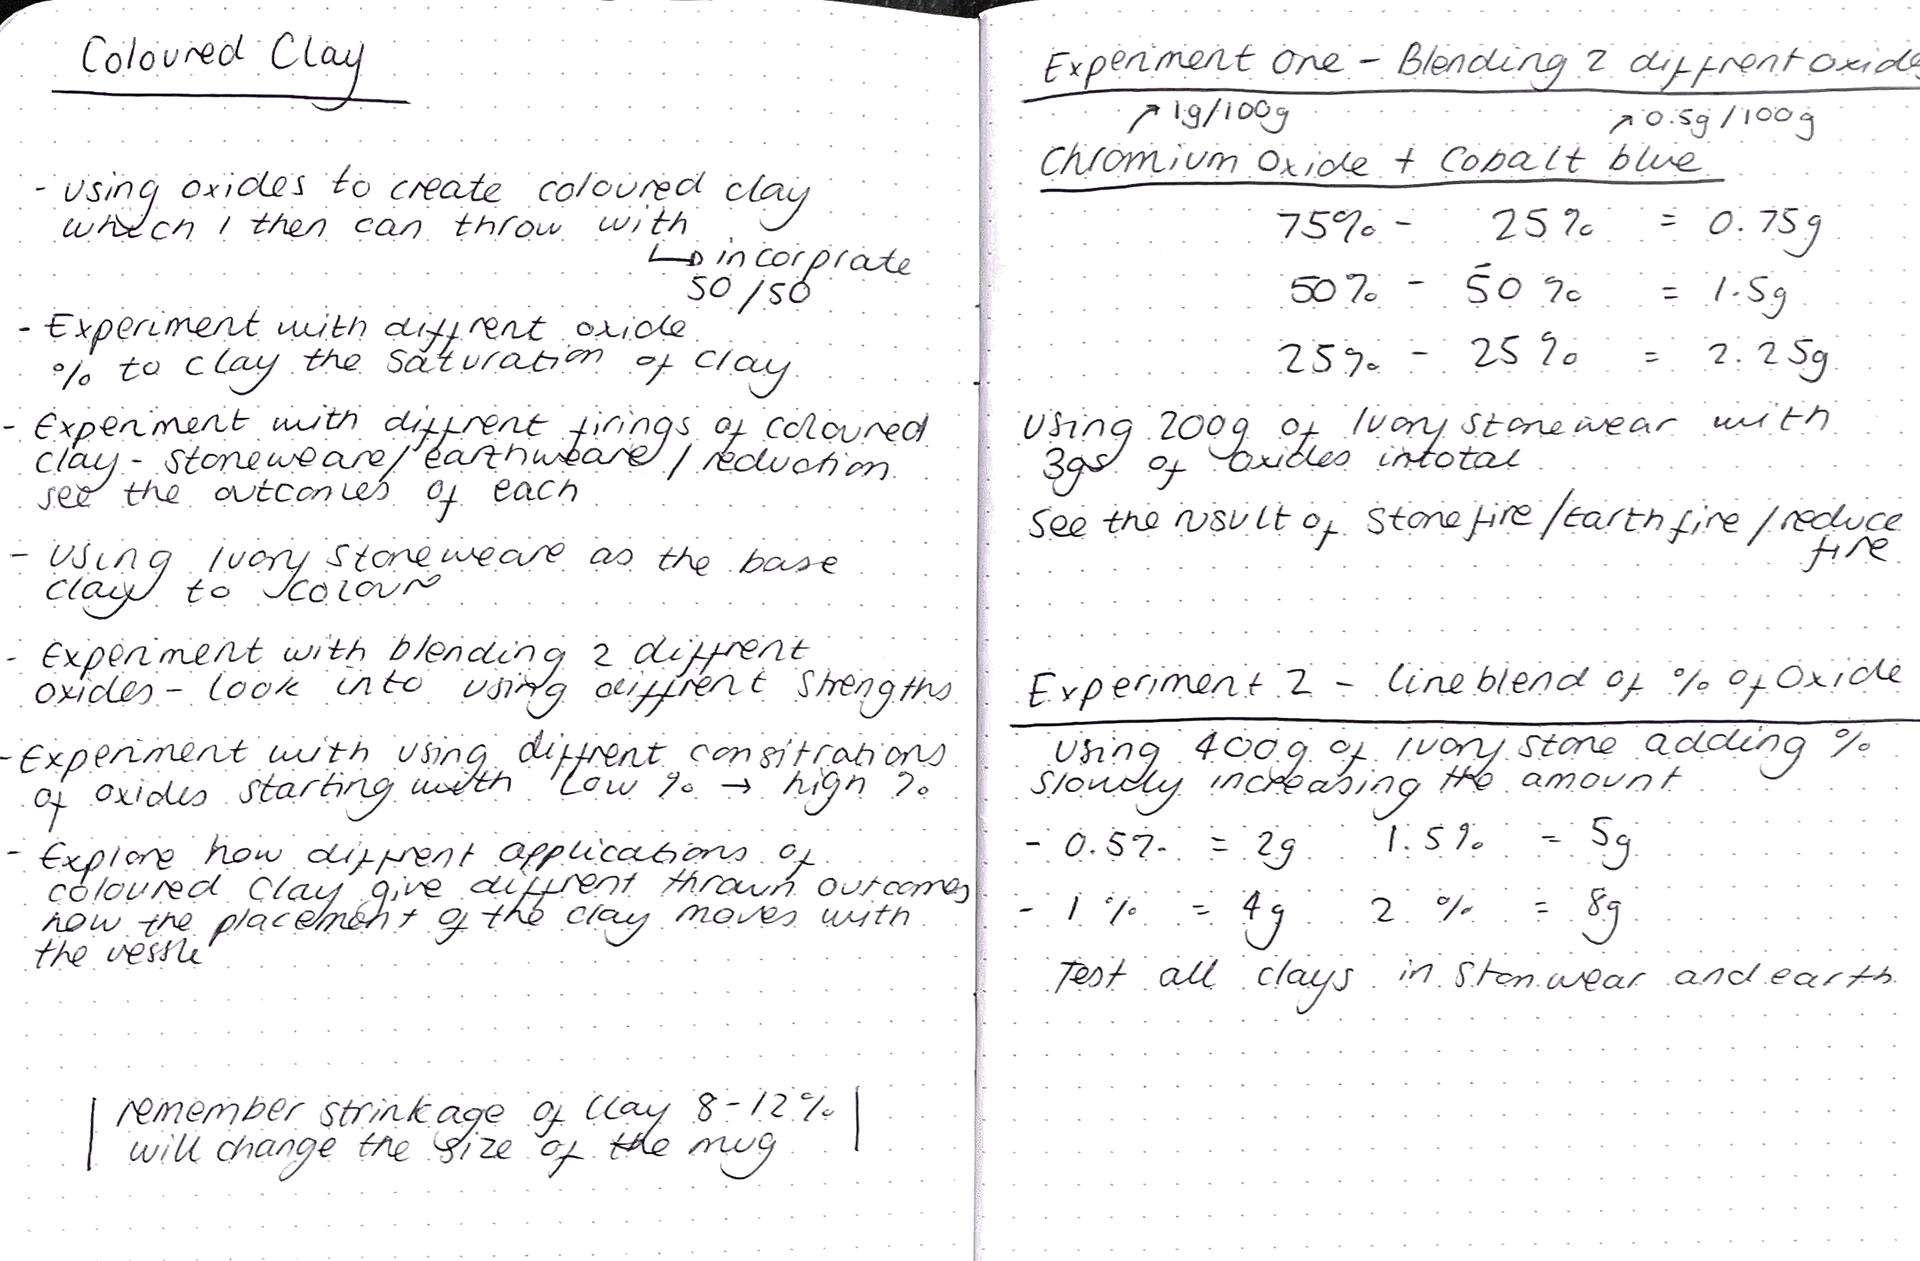 Coloured Clay
- using oxides to create coloured clay
which I then can throw with
↳ incorprate
50/50
- Experiment with diffrent oxide
% to clay the saturation of clay
- Experiment with diffrent firings of coloured
clay - stoneweare/earthweare/reduction
see the outcomes of each
- Using Ivory stoneweare as the base
clay to colour
- Experiment with blending 2 diffrent
oxides - look into using diffrent strengths
- Experiment with using diffrent consitrations
of oxides starting with low % → high %
- Explore how diffrent applications of
coloured clay give diffrent thrown outcomes
how the placement of the clay moves with
the vessle
remember strinkage of clay 8-12%
will change the size of the mug
Experiment one - Blending 2 diffrent oxide
↗ 1g/100g ↗ 0.5g/100g
Chromium Oxide + Cobalt blue
75% - 25% = 0.75g
50% - 50% = 1.5g
25% - 25% = 2.25g
Using 200g of Ivory stonewear with
3gs of oxides intotal
See the result of stonefire/Earthfire/reduce
fire
Experiment 2 - line blend of % of Oxide
Using 400g of Ivory stone adding %
slowly increasing the amount
- 0.5% = 2g 1.5% = 5g
- 1% = 4g 2% = 8g
Test all clays in stonwear and earth